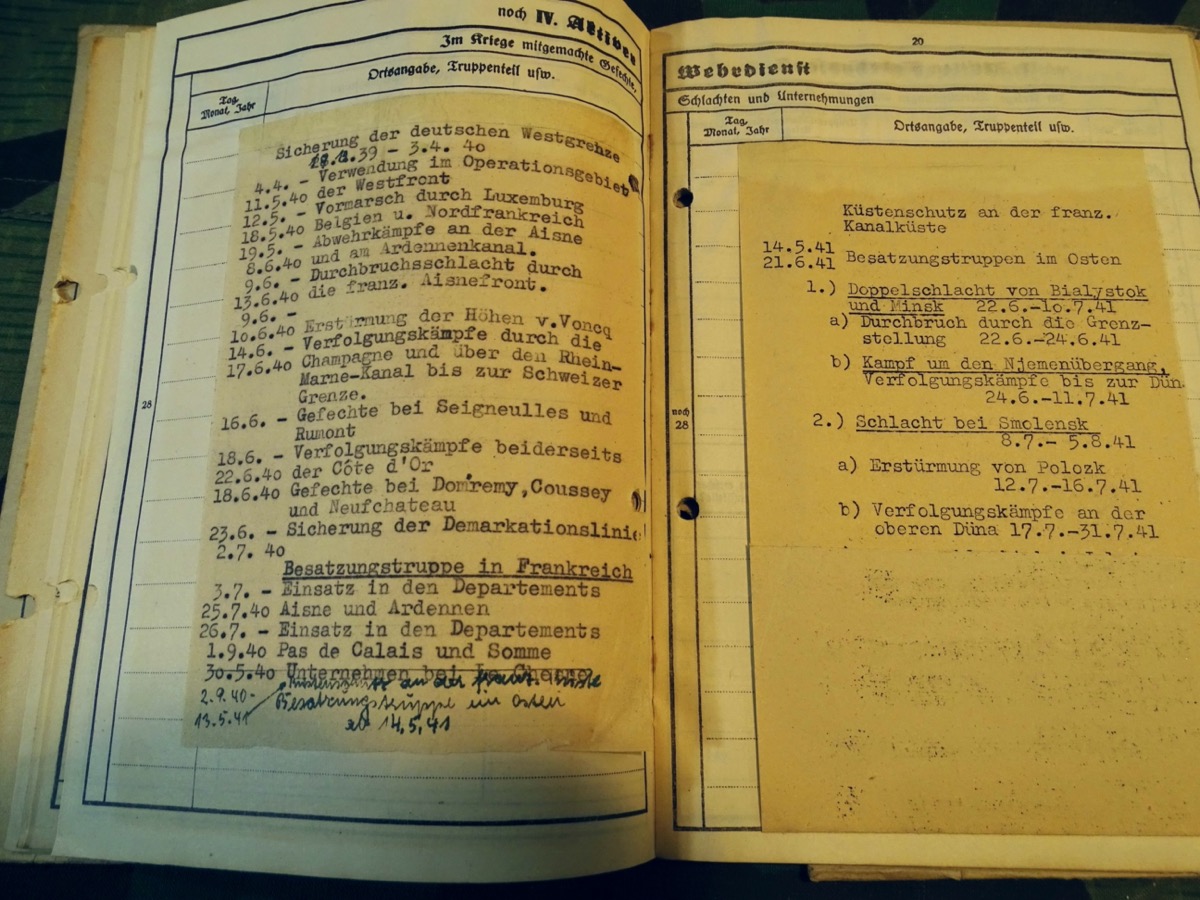 noch IV. Aktiver
Im Kriege mitgemachte Gefechte,
Tag, Monat, Jahr
Ortsangabe, Truppenteil usw.
28
Sicherung der deutschen Westgrenze
39 - 3.4. 40
4.4. - Verwendung im Operationsgebiet
11.5.40 der Westfront
12.5. - Vormarsch durch Luxemburg
18.5.40 Belgien u. Nordfrankreich
19.5. - Abwehrkämpfe an der Aisne
8.6.40 und am Ardennenkanal.
9.6. - Durchbruchsschlacht durch
13.6.40 die franz. Aisnefront.
9.6. -
10.6.40 Erstürmung der Höhen v.Voncq
14.6. - Verfolgungskämpfe durch die
17.6.40 Champagne und über den Rhein-
Marne-Kanal bis zur Schweizer
Grenze.
16.6. - Gefechte bei Seigneulles und
Rumont
18.6. - Verfolgungskämpfe beiderseits
22.6.40 der Côte d'Or
18.6.40 Gefechte bei Domremy,Coussey
und Neufchateau
23.6. - Sicherung der Demarkationslinie
2.7. 40
Besatzungstruppe in Frankreich
3.7. - Einsatz in den Departements
25.7.40 Aisne und Ardennen
26.7. - Einsatz in den Departements
1.9.40 Pas de Calais und Somme
30.5.40 Unternehmen bei Le Chesne
2.9.40- Küstenschutz an der franz. Küste
13.5.41 Besatzungstruppe im Osten
ab 14.5.41
20
Wehrdienst
Schlachten und Unternehmungen
Tag, Monat, Jahr
Ortsangabe, Truppenteil usw.
noch 28
Küstenschutz an der franz.
Kanalküste
14.5.41
21.6.41 Besatzungstruppen im Osten
1.) Doppelschlacht von Bialystok
und Minsk 22.6.-10.7.41
a) Durchbruch durch die Grenz-
stellung 22.6.-24.6.41
b) Kampf um den Njemenübergang,
Verfolgungskämpfe bis zur Dün
24.6.-11.7.41
2.) Schlacht bei Smolensk
8.7.- 5.8.41
a) Erstürmung von Polozk
12.7.-16.7.41
b) Verfolgungskämpfe an der
oberen Düna 17.7.-31.7.41